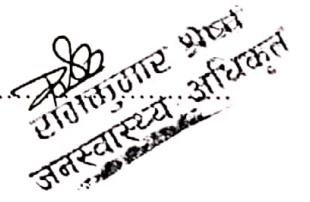 राजकुमार श्रेष्ठ
जनस्वास्थ्य अधिकृत